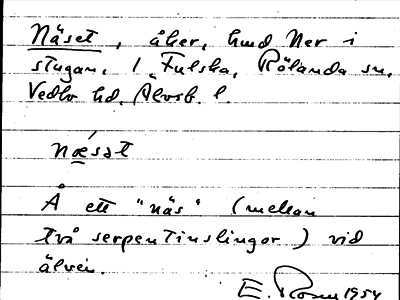 Näset, åker, hmd Ner i
stugan, 1 Fulska, Rölanda sn,
Vedbo hd. Älvsb. l.
Nǽsət
Å ett "näs" (mellan
två serpentinslingor) vid
älven.
E. Rosén 1954